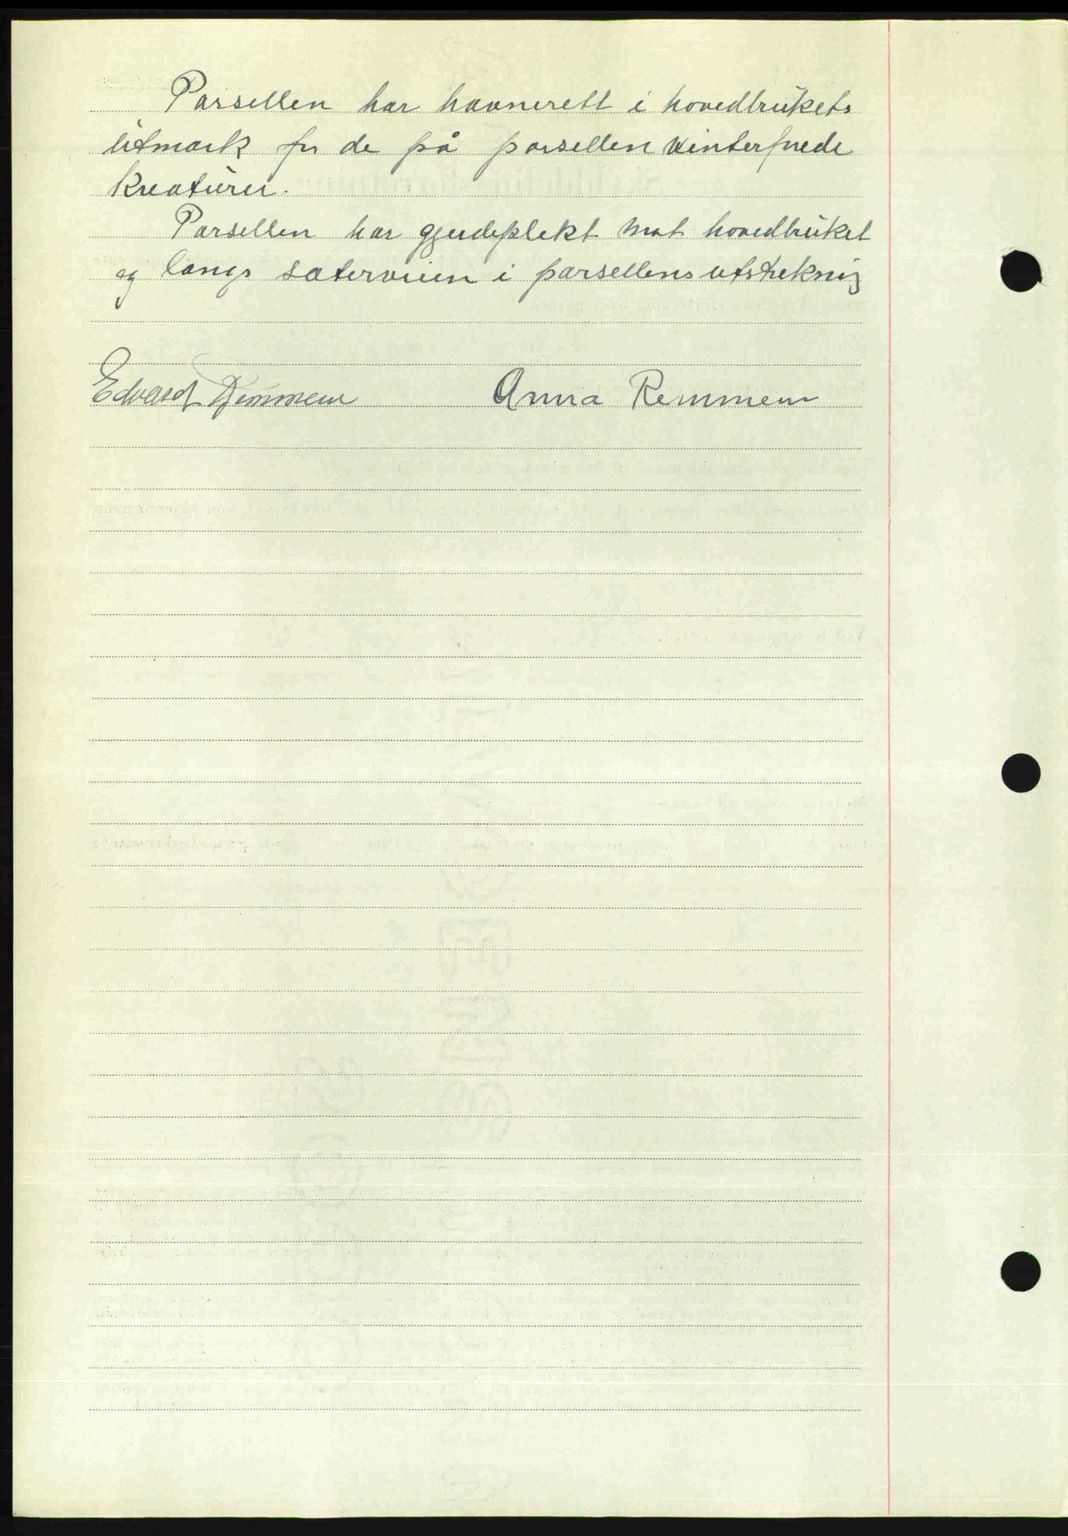 Parsellen har havnerett i hovedbrukets
utmark for de på parsellen vinterfødde
kreaturer.
Parsellen har gjerdeplikt mot hovedbruket
og langs sæterveien i parsellens utstrekning
Edvard Remmem Anna Remmem